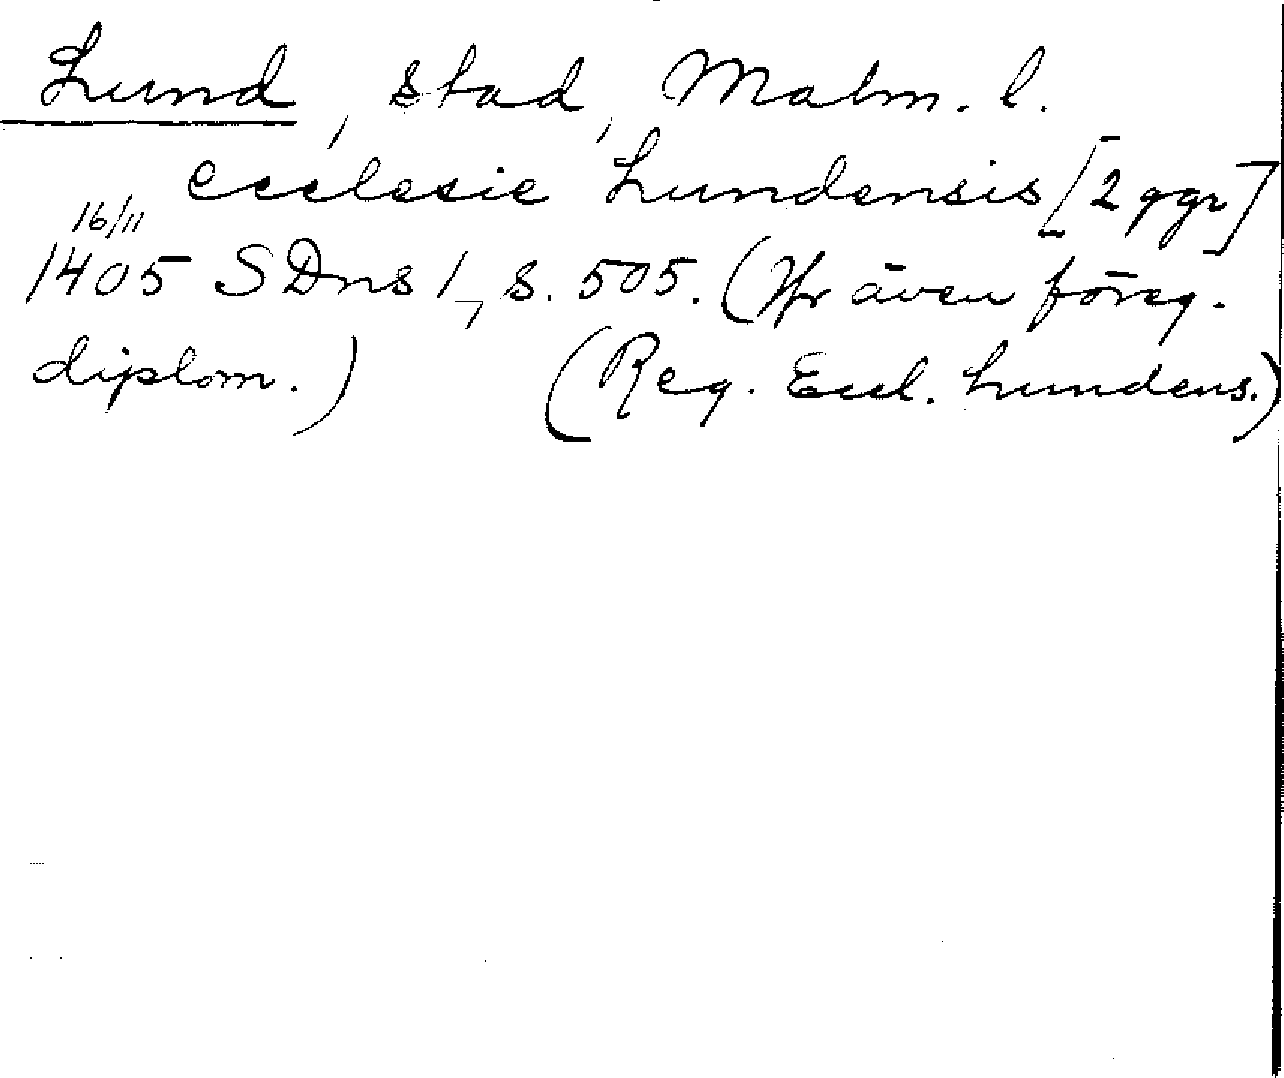 Lund, stad, Malm. l.
ecclesie Lundensis [2 ggr]
16/11
1405 SDns 1, s. 505. (Jfr även föreg.
diplom.) (Reg. Eccl. Lundens.)